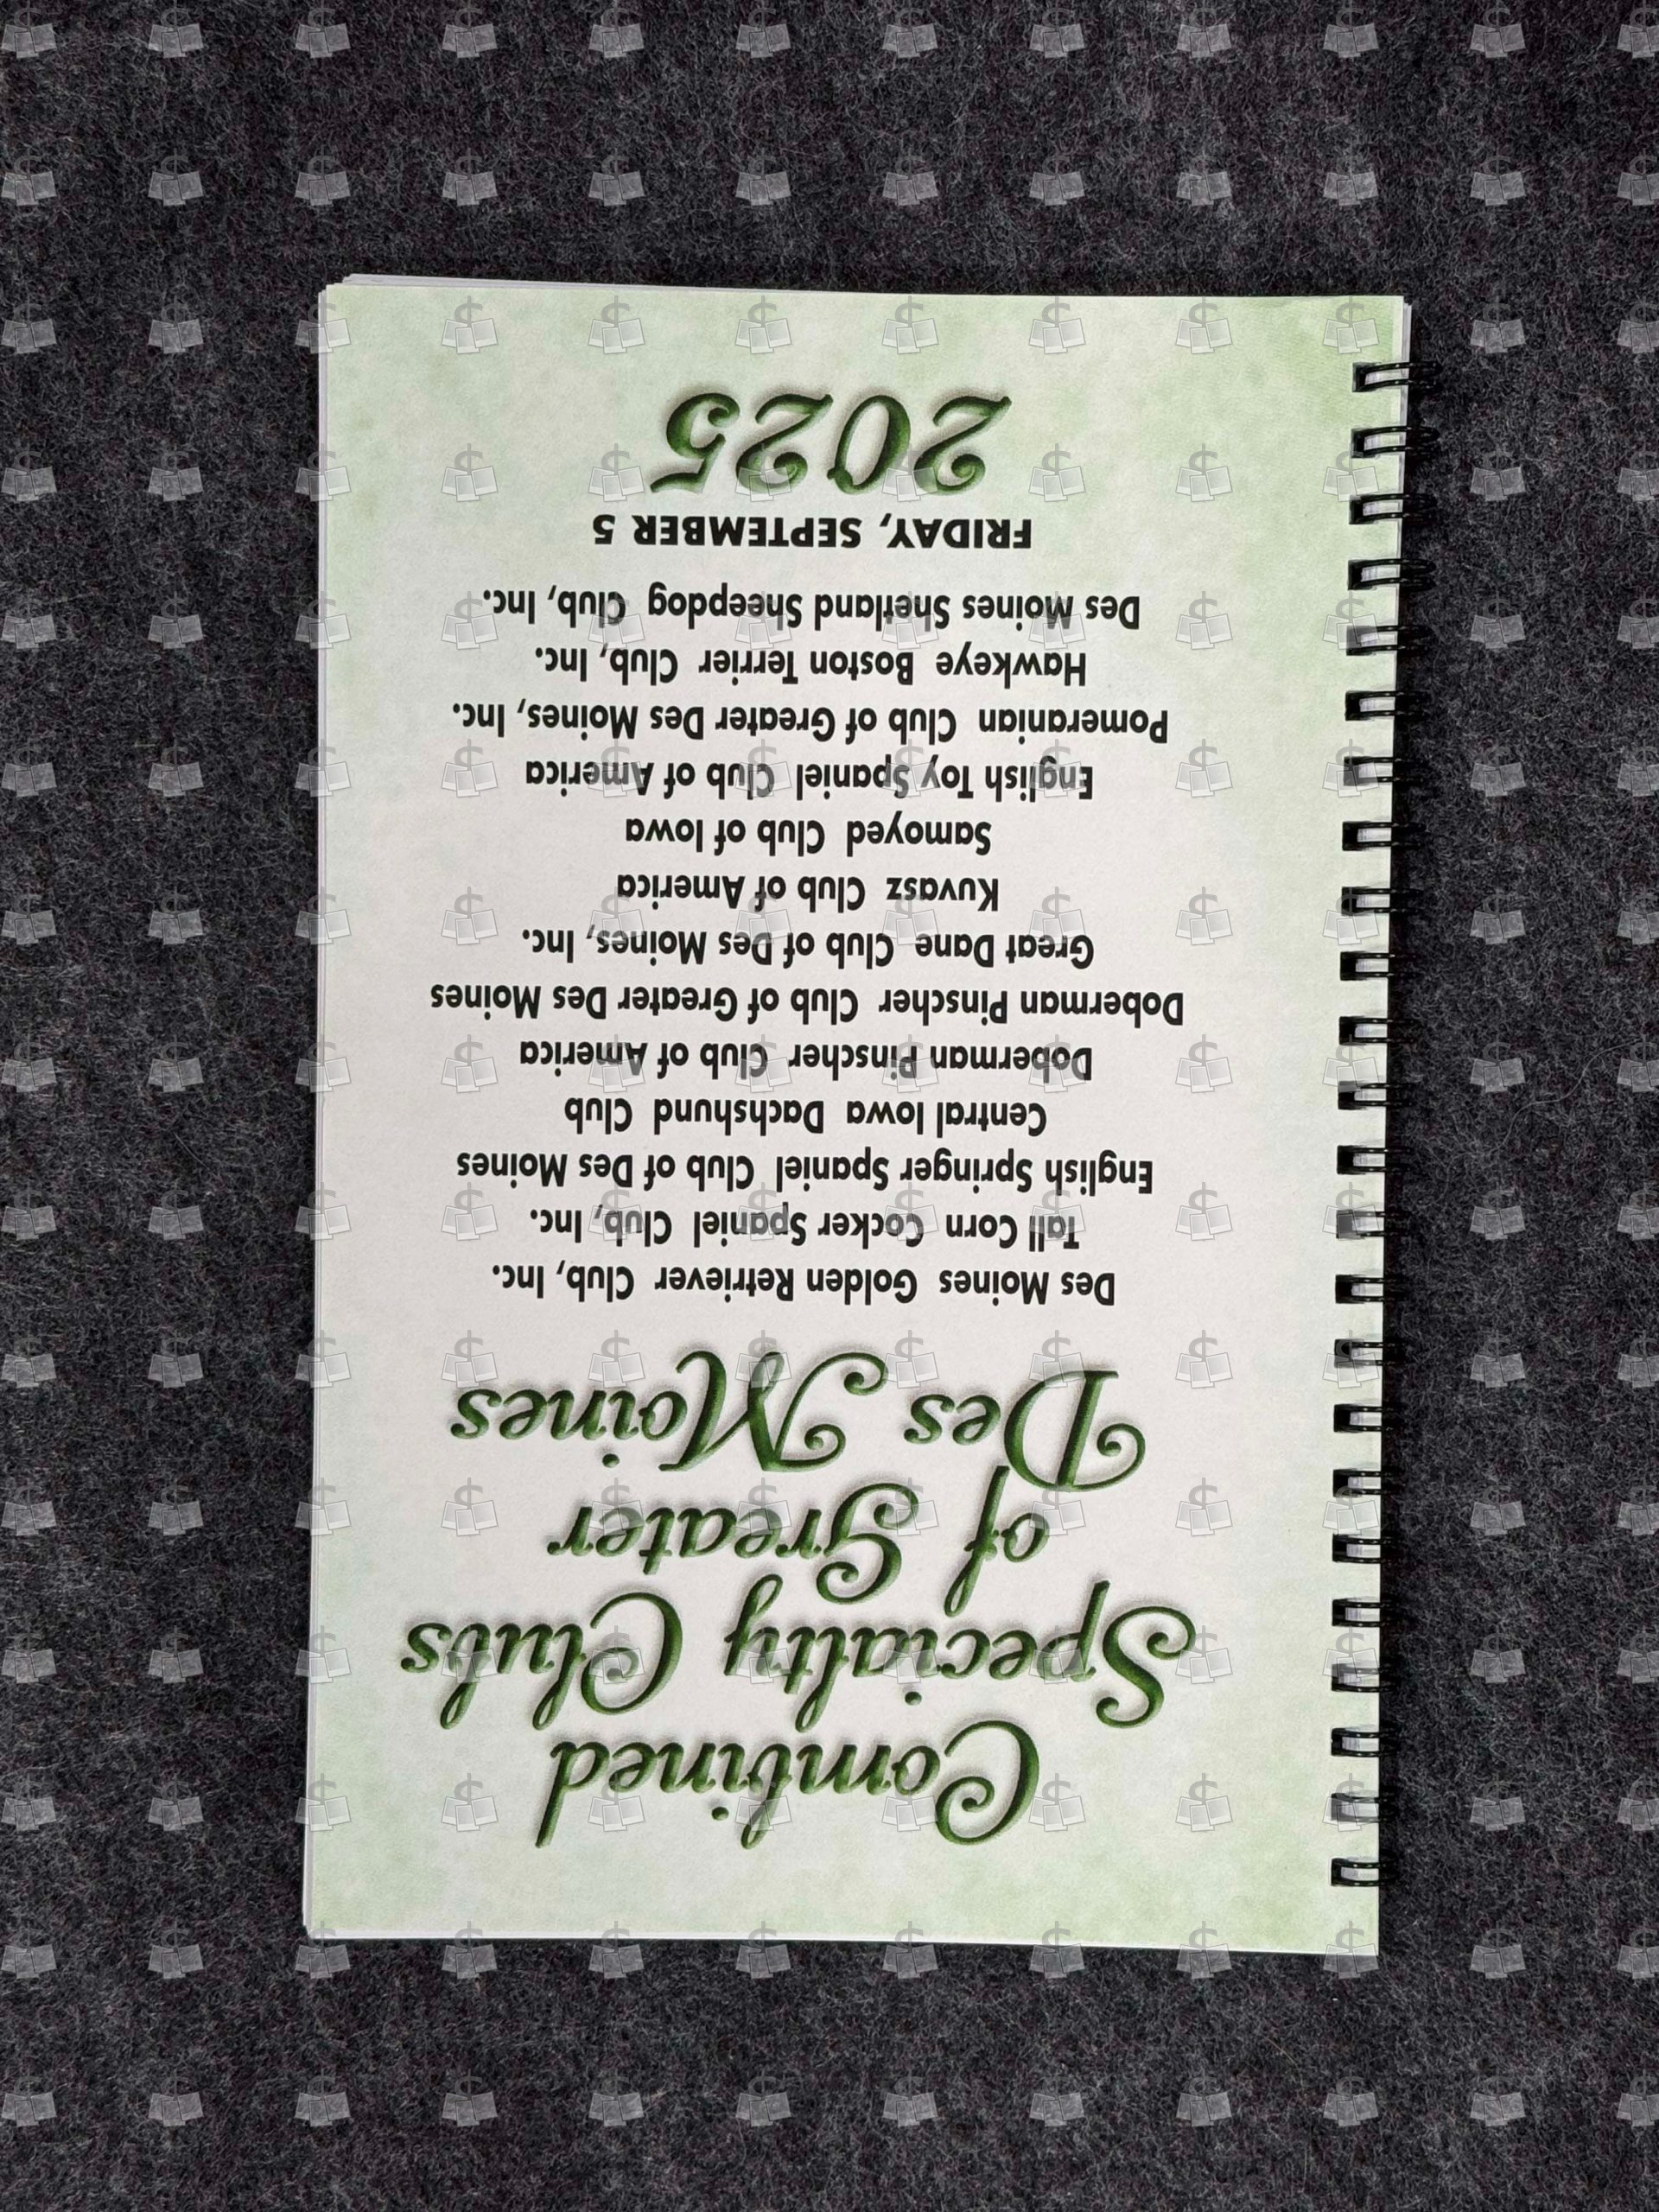 Combined
Specialty Clubs
of Greater
Des Moines
Des Moines Golden Retriever Club, Inc.
Tall Corn Cocker Spaniel Club, Inc.
English Springer Spaniel Club of Des Moines
Central Iowa Dachshund Club
Doberman Pinscher Club of America
Doberman Pinscher Club of Greater Des Moines
Great Dane Club of Des Moines, Inc.
Kuvasz Club of America
Samoyed Club of Iowa
English Toy Spaniel Club of America
Pomeranian Club of Greater Des Moines, Inc.
Hawkeye Boston Terrier Club, Inc.
Des Moines Shetland Sheepdog Club, Inc.
FRIDAY, SEPTEMBER 5
2025